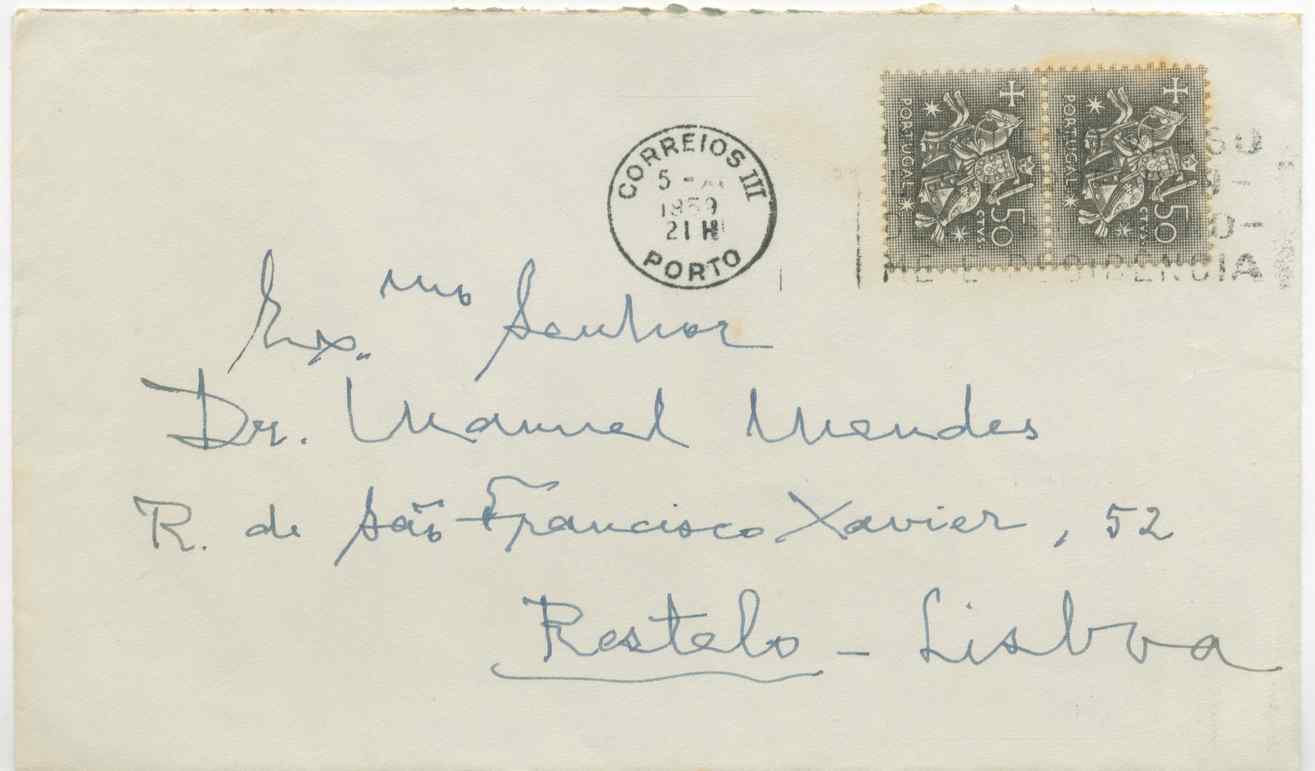 CORREIOS III
5 -
1959
21 H
PORTO
PORTUGAL
50
CTVS
PORTUGAL
50
CTVS
ME E RESIDENCIA
Ex.mo Senhor
Dr. Manuel Mendes
R. de São Francisco Xavier, 52
Restelo - Lisboa